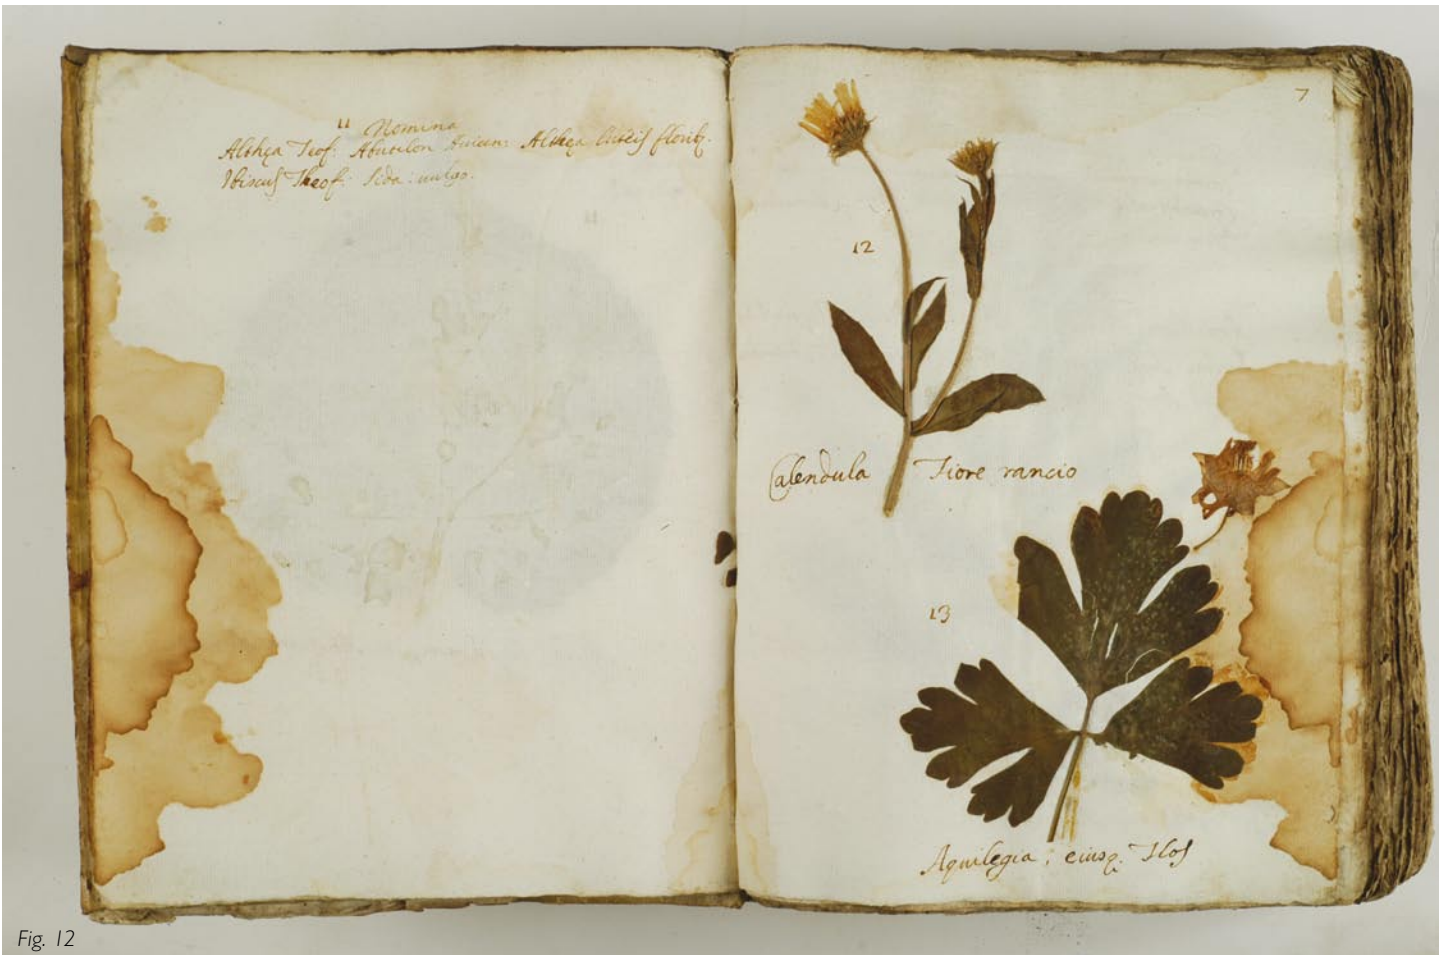 11 Nomina
Althęa Teof: Abutilon Auicen: Althęa luteis florib.
Ibiscus Theof: Sida: uulgo.
7
12
Calendula Fiore rancio
13
Aquilegia; eiusq. Flos
Fig. 12